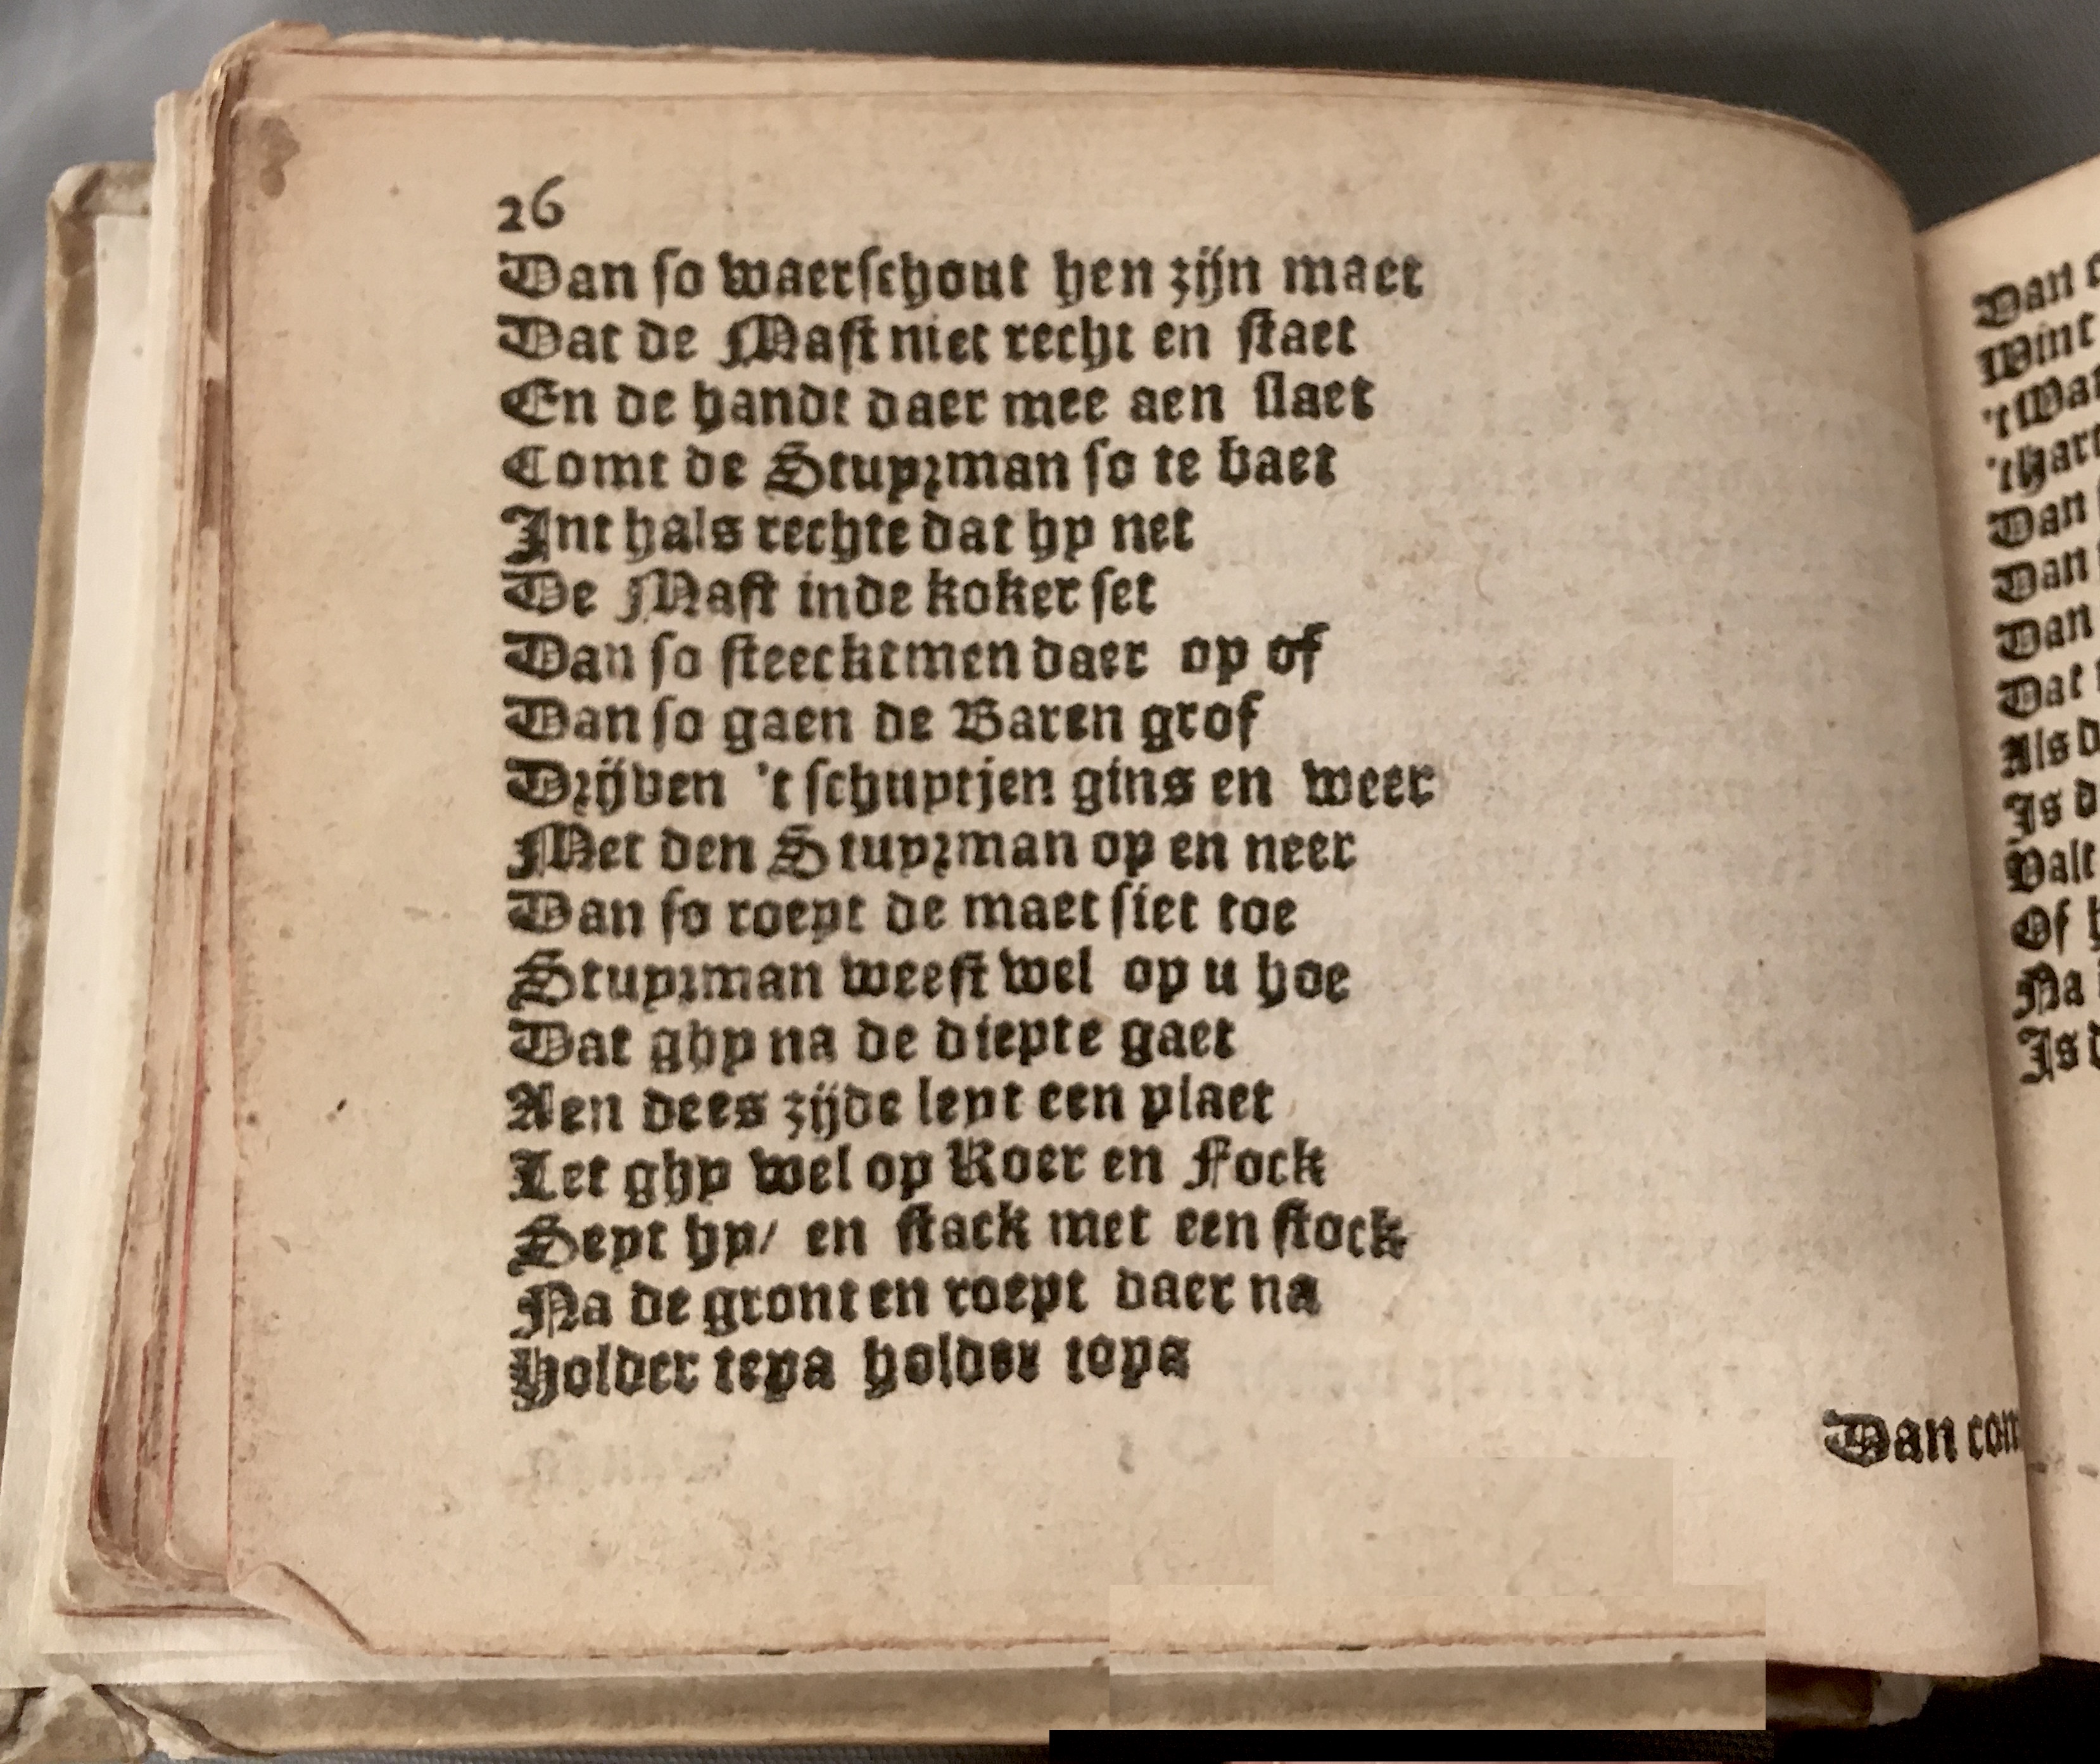 26
Dan so waerschout hen zijn maet
Dat de Mast niet recht en staet
En de handt daer mee aen slaet
Comt de Stuyrman so te baet
Int hals rechte dat hy net
De Mast inde koker set
Dan so steecktmen daer op of
Dan so gaen de Baren grof
Drijven 't schuytjen gins en weer
Met den Stuyrman op en neer
Dan so roept de maet siet toe
Stuyrman weest wel op u hoe
Dat ghy na de diepte gaet
Aen dees zijde leyt een plaet
Let ghy wel op Roer en Fock
Seyt hy/ en stack met een stock
Na de gront en roept daer na
Holder teya holder toya
Dan com
Dan
Wint
't Wat
't hart
Dan
Dan
Dan
Dat
Als d
Is d
Valt
Of h
Na
Is d